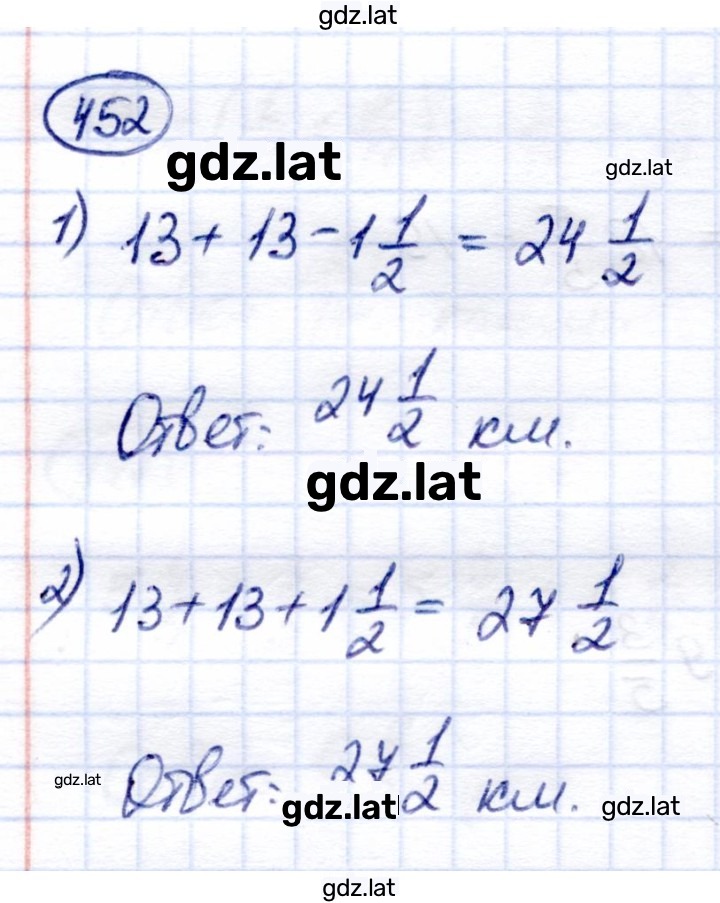 gdz.lat
452
gdz.lat
gdz.lat
1) 13 + 13 - 1 1/2 = 24 1/2
Ответ: 24 1/2 км.
gdz.lat
2) 13 + 13 + 1 1/2 = 27 1/2
Ответ: 27 1/2 км.
gdz.lat
gdz.lat
gdz.lat
gdz.lat